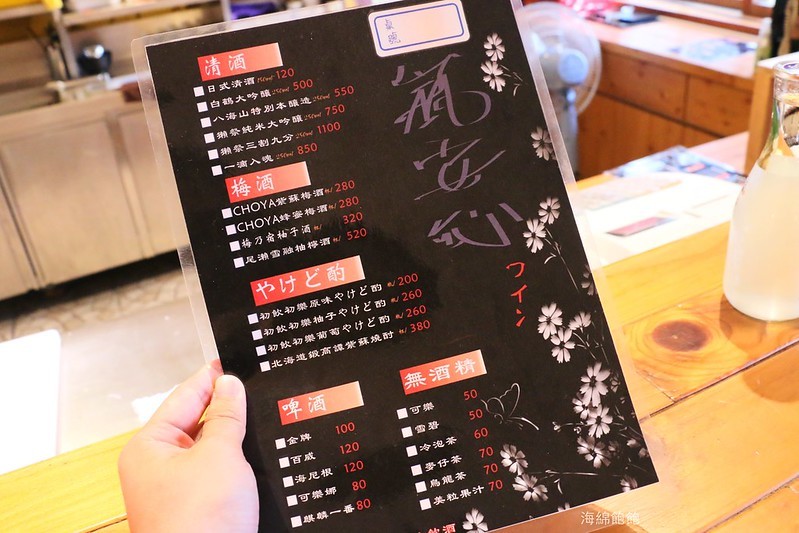 桌號
清酒
日式清酒 150ml 120
白鶴大吟釀 250ml 500
八海山特別本釀造 250ml 550
獺祭純米大吟釀 250ml 750
獺祭三割九分 250ml 1100
一滴入魂 250ml 850
梅酒
CHOYA紫蘇梅酒 280
CHOYA蜂蜜梅酒 280
梅乃宿柚子酒 320
尾瀨雪融柚檸酒 520
やけど酌
初飲初樂原味やけど酌 200
初飲初樂柚子やけど酌 260
初飲初樂葡萄やけど酌 260
北海道鍛高譚紫蘇燒酎 380
啤酒
金牌 100
百威 120
海尼根 120
可樂娜 80
麒麟一番 80
無酒精
可樂 50
雪碧 50
冷泡茶 60
麥仔茶 70
烏龍茶 70
美粒果汁 70
ワイン
飲酒
海綿飽飽